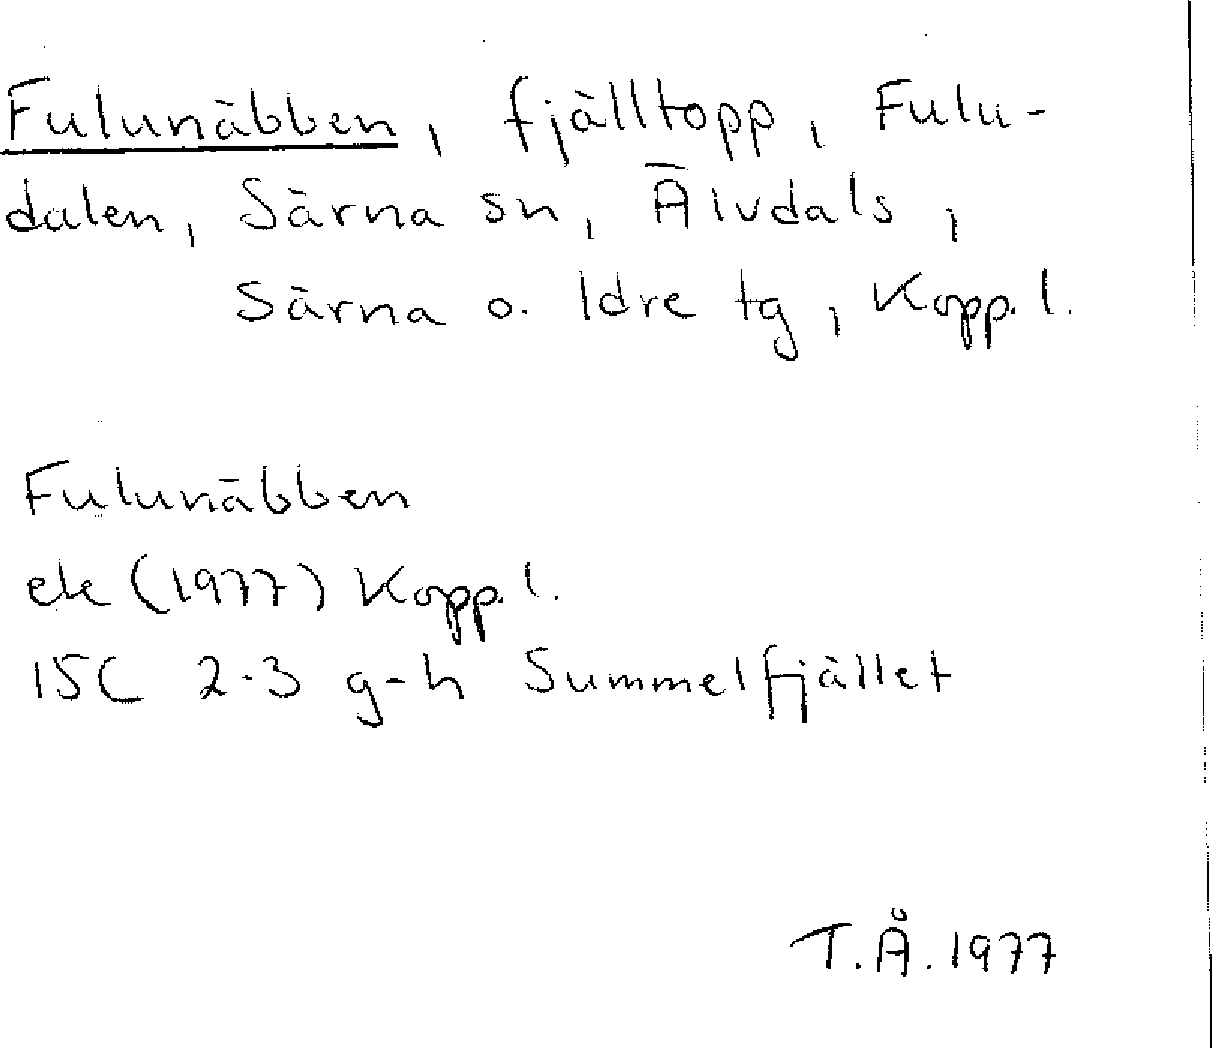 Fulunäbben, fjälltopp, Fulu-
dalen, Särna sn, Älvdals,
Särna o. Idre tg, Kopp. l.
Fulunäbben
ek (1977) Kopp. l.
15C 2-3 g-h Summelfjället
T.Å. 1977